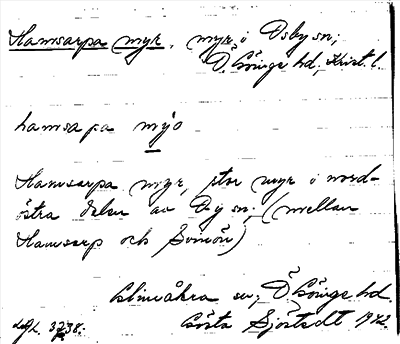 Hamsarpa myr, myr i Osby sn;
Ö. Göinge hd, Krist. l.
hamsapa mýo
Hamsarpa myr, stor myr i nord-
östra delen av Osby sn; (mellan
Hamsarp och Simön)
Glimåkra sn, Ö Göinge hd
Gösta Sjöstedt 1942.
3738.